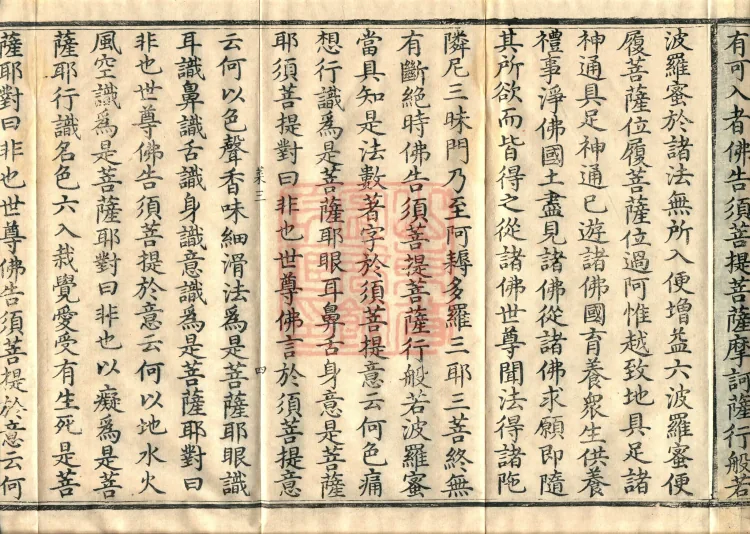 有可入者佛告須菩提菩薩摩訶薩行般若
波羅蜜於諸法無所入便增益六波羅蜜便
履菩薩位履菩薩位過阿惟越致地具足諸
神通具足神通已遊諸佛國育養衆生供養
禮事淨佛國土盡見諸佛從諸佛求願即隨
其所欲而皆得之從諸佛世尊聞法得諸陁
隣尼三昧門乃至阿耨多羅三耶三菩終無
有斷絕時佛告須菩提菩薩行般若波羅蜜
當具知是法數著字於須菩提意云何色痛
想行識爲是菩薩耶眼耳鼻舌身意是菩薩
耶須菩提對曰非也世尊佛言於須菩提意
菜三 四
云何以色聲香味細滑法爲是菩薩耶眼識
耳識鼻識舌識身識意識爲是菩薩耶對曰
非也世尊佛告須菩提於意云何以地水火
風空識爲是菩薩耶對曰非也以癡爲是菩
薩耶行識名色六入栽覺愛受有生死是菩
薩耶對曰非也世尊佛告須菩提於意云何